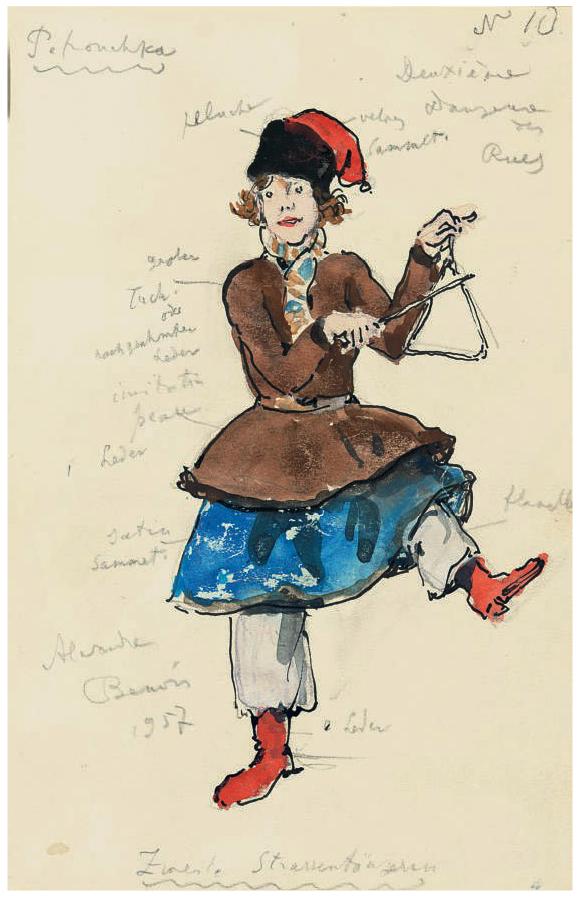 Petrouchka
N 10
Deuxième
Danseuse
des
Rues
peluche
velours
Sammet.
grober
Tuch.
oder
Leder
imitation
peau
Leder
Satin
Sammet.
flanelle
Alexandre
Benois
1957
Leder
Zweite Strassentänzerin